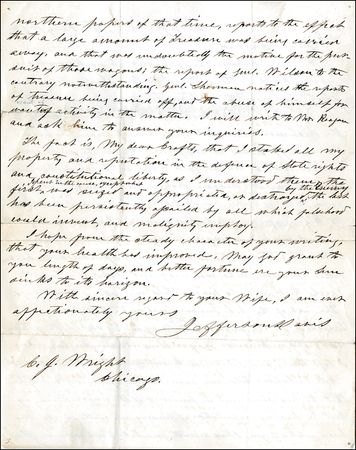 northern papers of that time, reports to the effect
that a large amount of treasure was being carried
away, and that was undoubtedly the motive for the pur
suit of those wagons; the report of Genl. Wilson to the
contrary notwithstanding. Genl. Sherman notices the reports
of treasure being carried off, and the abuse of himself for
want of activity in the matter. I will write to Mr. Reagan
and ask him to answer your inquiries.
The fact is, My dear Crafts, that I staked all my
property and reputation in the defence of State rights
and constitutional liberty, as I understood them; the
first, was seized and appropriated, or destroyed, by the Enemy the last
has been persistently assailed by all which falsehood
could invent, and malignity employ.
I hope from the steady character of your writing,
that your health has improved. May God grant to
you length of days, and better fortune ere your Sun
sinks to its horizon.
With sincere regard to your Wife, I am ever
affectionately yours
Jefferson Davis
C. J. Wright
Chicago.